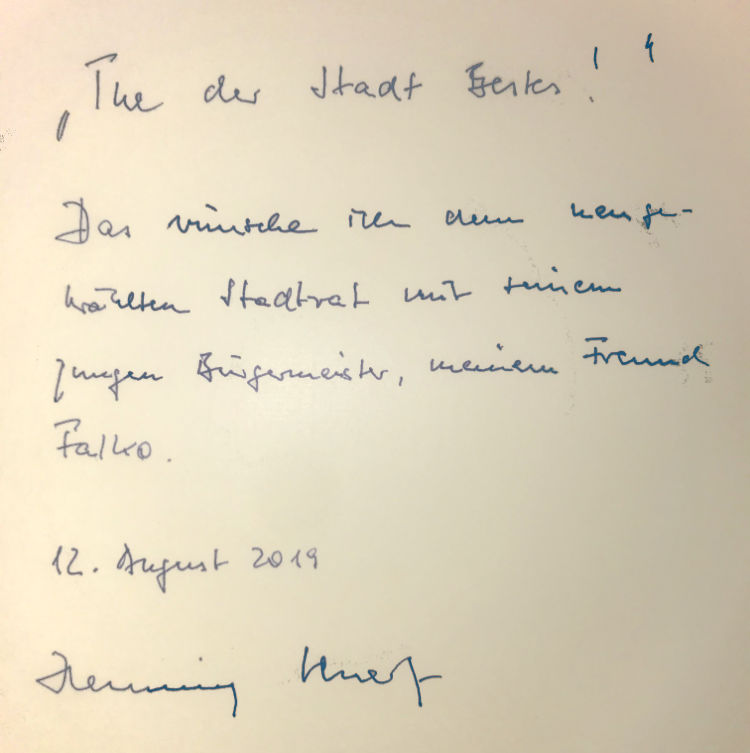 „Tue der Stadt Bestes!“
Das wünsche ich dem neuge-
wählten Stadtrat mit seinem
jungen Bürgermeister, meinem Freund
Falko.
12. August 2019
Henning